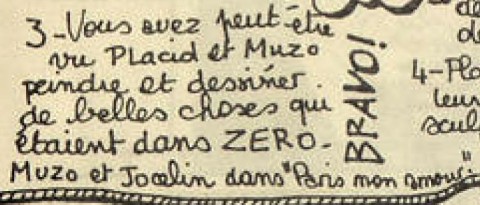 3-Vous avez peut-être
vu Placid et Muzo
peindre et dessiner
de belles choses qui
étaient dans ZERO-
Muzo et Jocelin dans "Paris mon amour"-
BRAVO!
de
de
4-Pla
leur
sculp